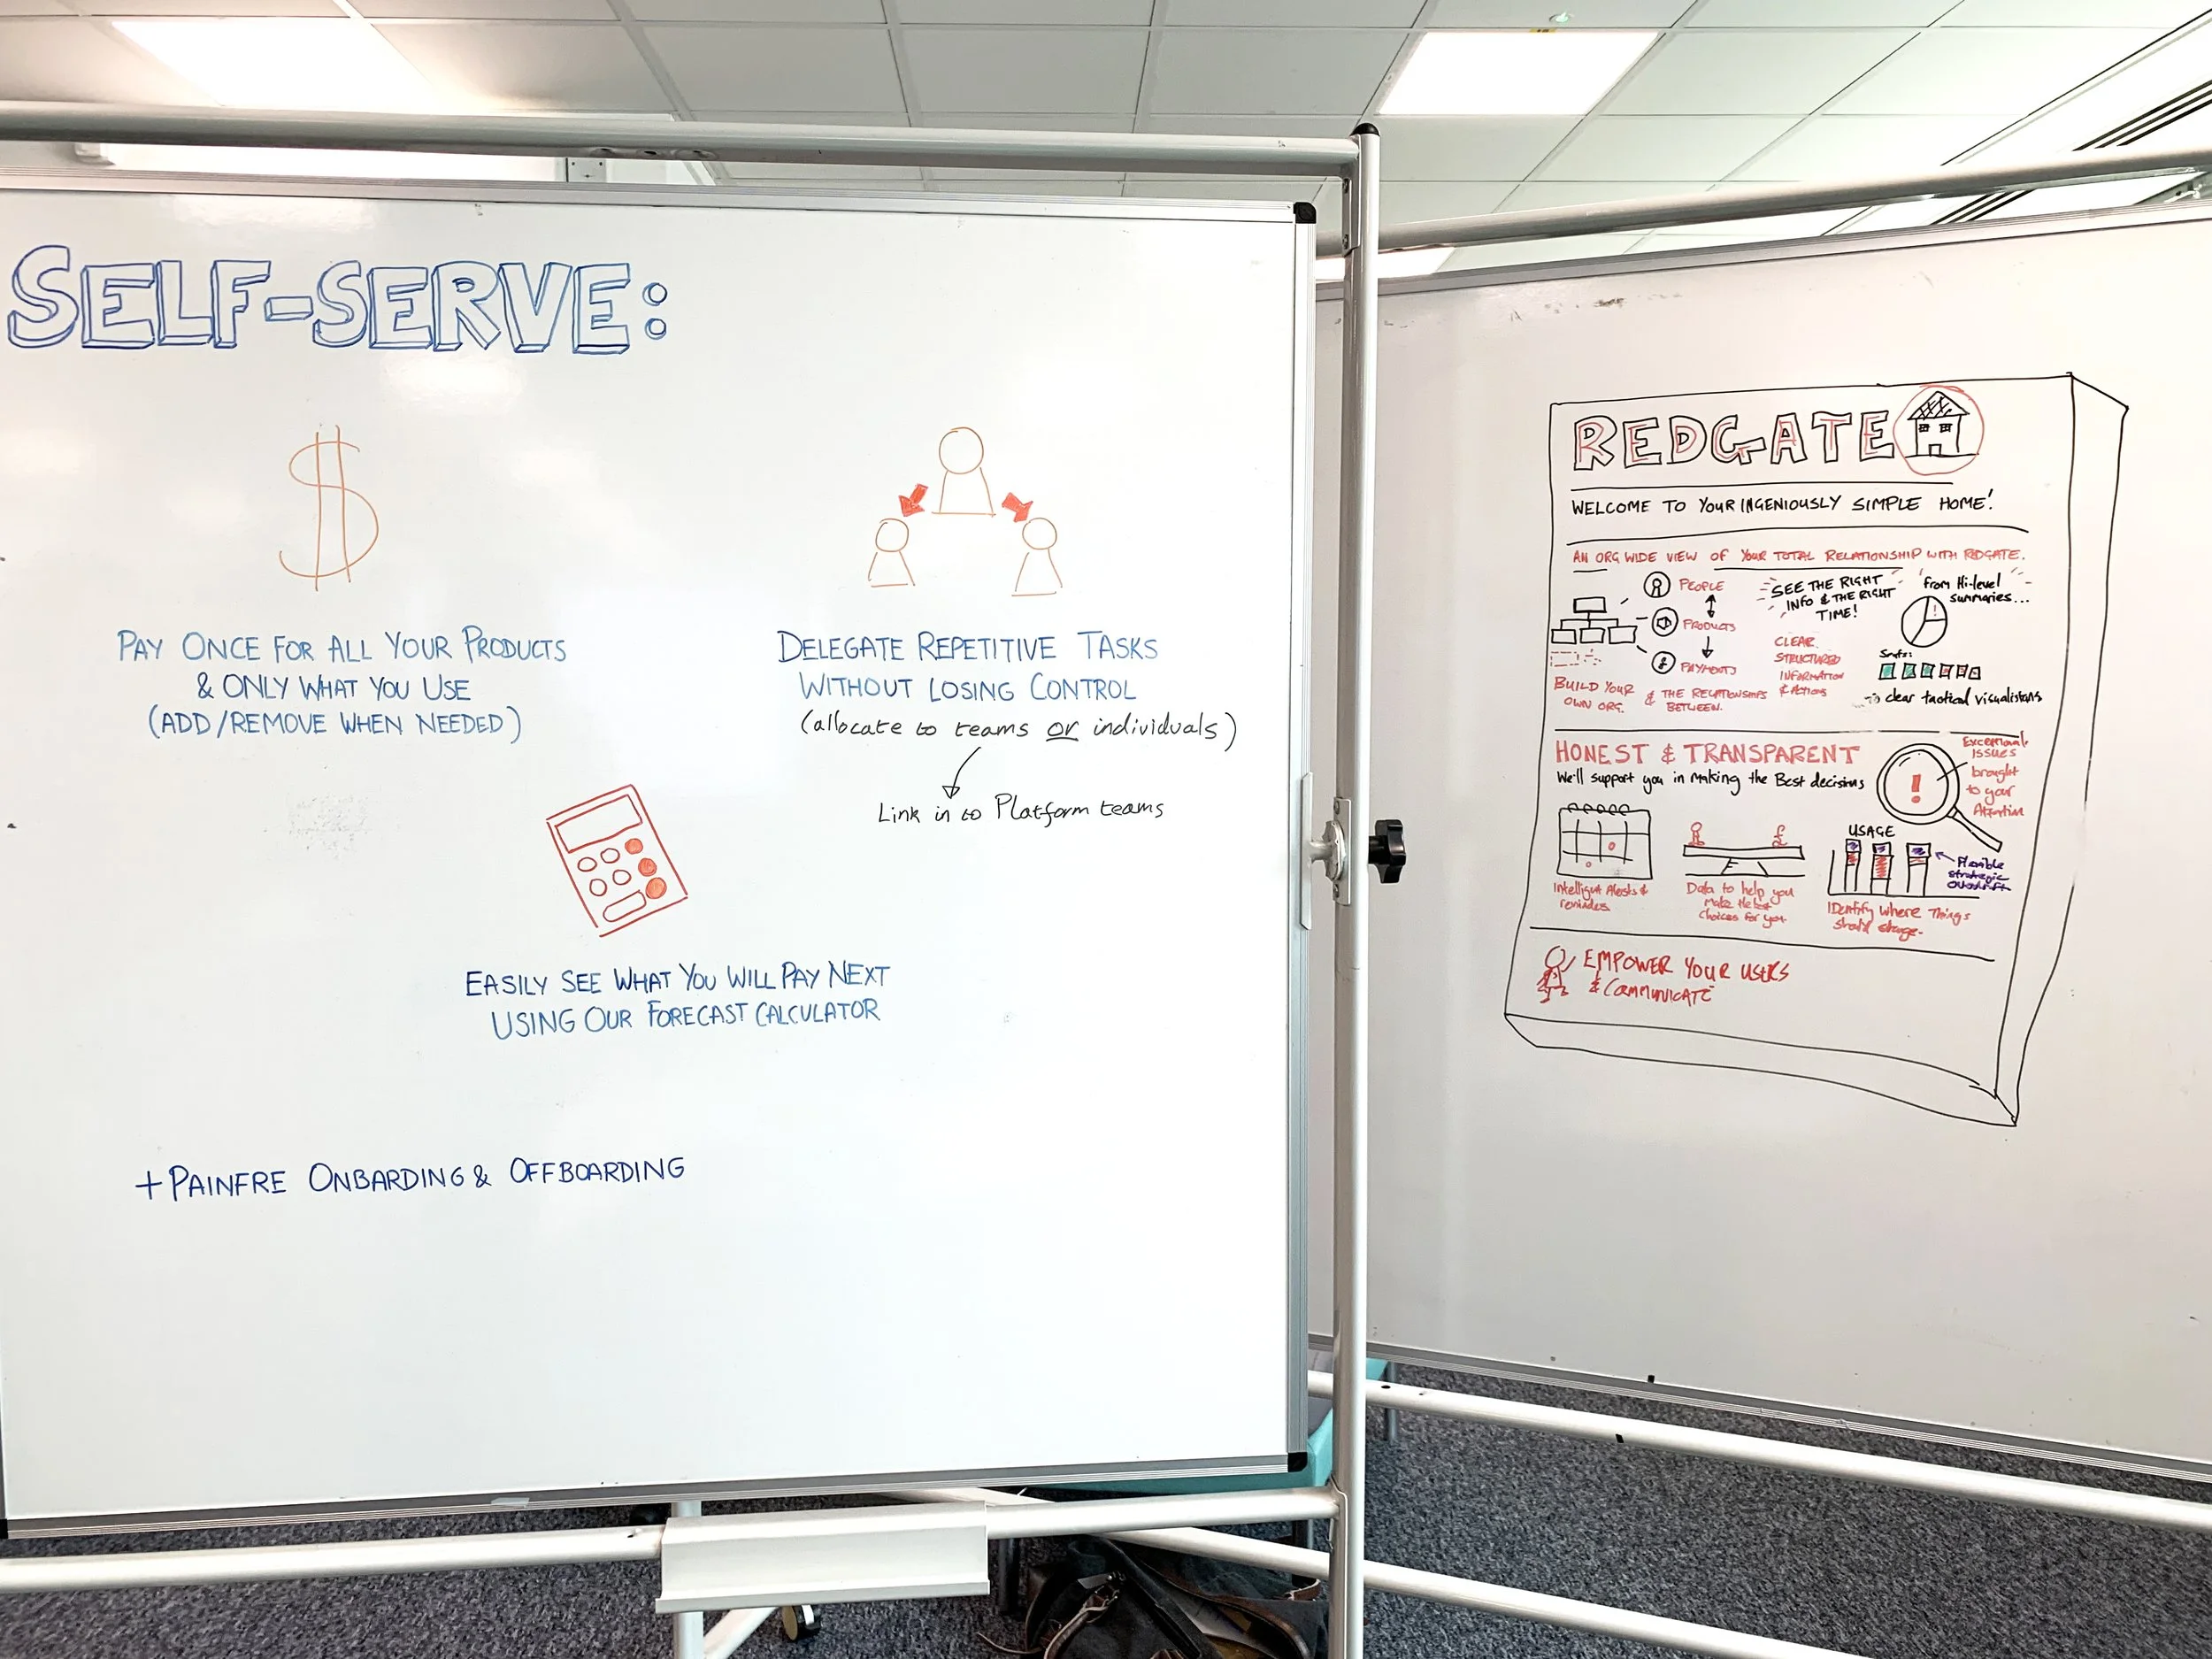 SELF-SERVE:
PAY ONCE FOR ALL YOUR PRODUCTS
& ONLY WHAT YOU USE
(ADD/REMOVE WHEN NEEDED)
DELEGATE REPETITIVE TASKS
WITHOUT LOSING CONTROL
(allocate to teams or individuals)
Link in to Platform teams
EASILY SEE WHAT YOU WILL PAY NEXT
USING OUR FORECAST CALCULATOR
+ PAINFRE ONBARDING & OFFBOARDING
REDGATE
WELCOME TO YOUR INGENIOUSLY SIMPLE HOME!
AN ORG WIDE VIEW OF YOUR TOTAL RELATIONSHIP WITH REDGATE.
PEOPLE
PRODUCTS
£ PAYMENTS
BUILD YOUR
OWN ORG.
& THE RELATIONSHIPS
BETWEEN.
SEE THE RIGHT
INFO & THE RIGHT
TIME!
CLEAR
STRUCTURED
INFORMATION
& Actions
from Hi-level
summaries...
clear tactical
HONEST & TRANSPARENT
We'll support you in making the Best decisions
!
Exceptional
Issues
brought
to your
Attention
Intelligent Alerts &
£
Data to help you
Make the best
choices for you
USAGE
Flexible
strategic
IDentify where Things
should change.
EMPOWER YOUR USERS
& COMMUNICATE